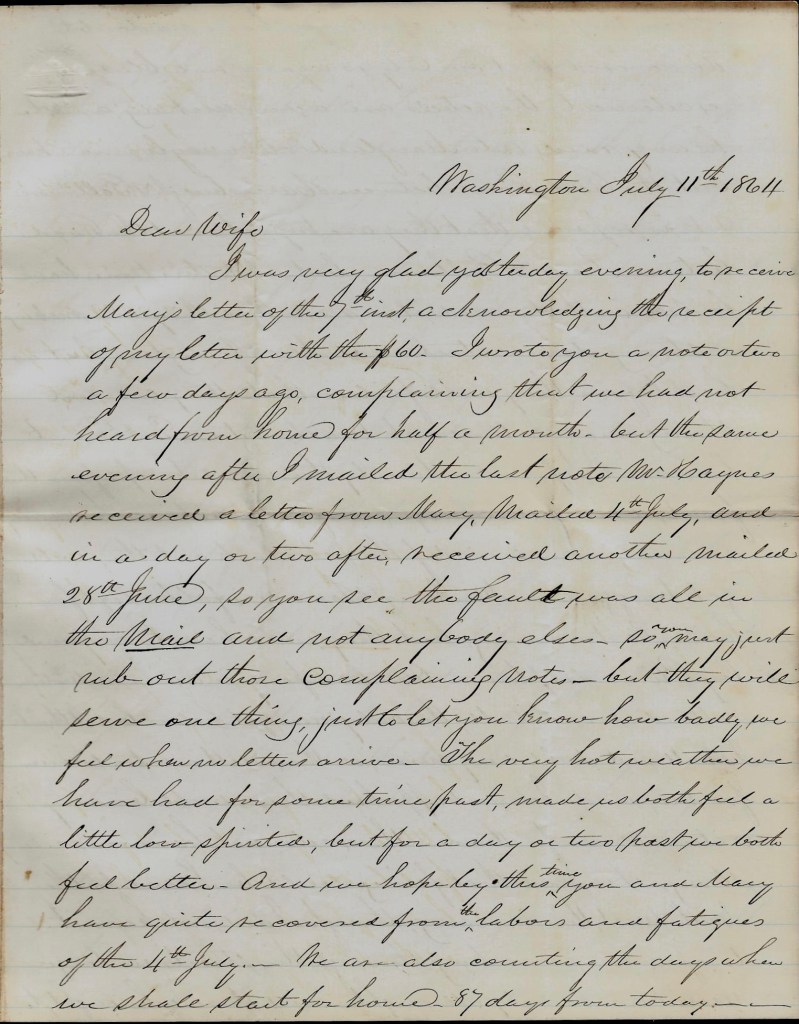 Washington July 11th 1864
Dear Wife
I was very glad yesterday evening, to receive
Mary's letter of the 7th inst, acknowledging the receipt
of my letter with the $60. I wrote you a note or two
a few days ago, complaining that we had not
heard from home for half a month - but the same
evening after I mailed the last note Mr. Haynes
received a letter from Mary, Mailed 4th July, and
in a day or two after, received another mailed
28th June, so you see the fault was all in
the Mail and not anybody elses - so you may just
rub out those complaining notes - but they will
serve one thing, just to let you know how badly we
feel when no letters arrive - The very hot weather we
have had for some time past, made us both feel a
little low spirited, but for a day or two past we both
feel better - And we hope by this time you and Mary
have quite recovered from the labors and fatigues
of the 4th July. - We are also counting the days when
we shall start for home - 87 days from today. - -